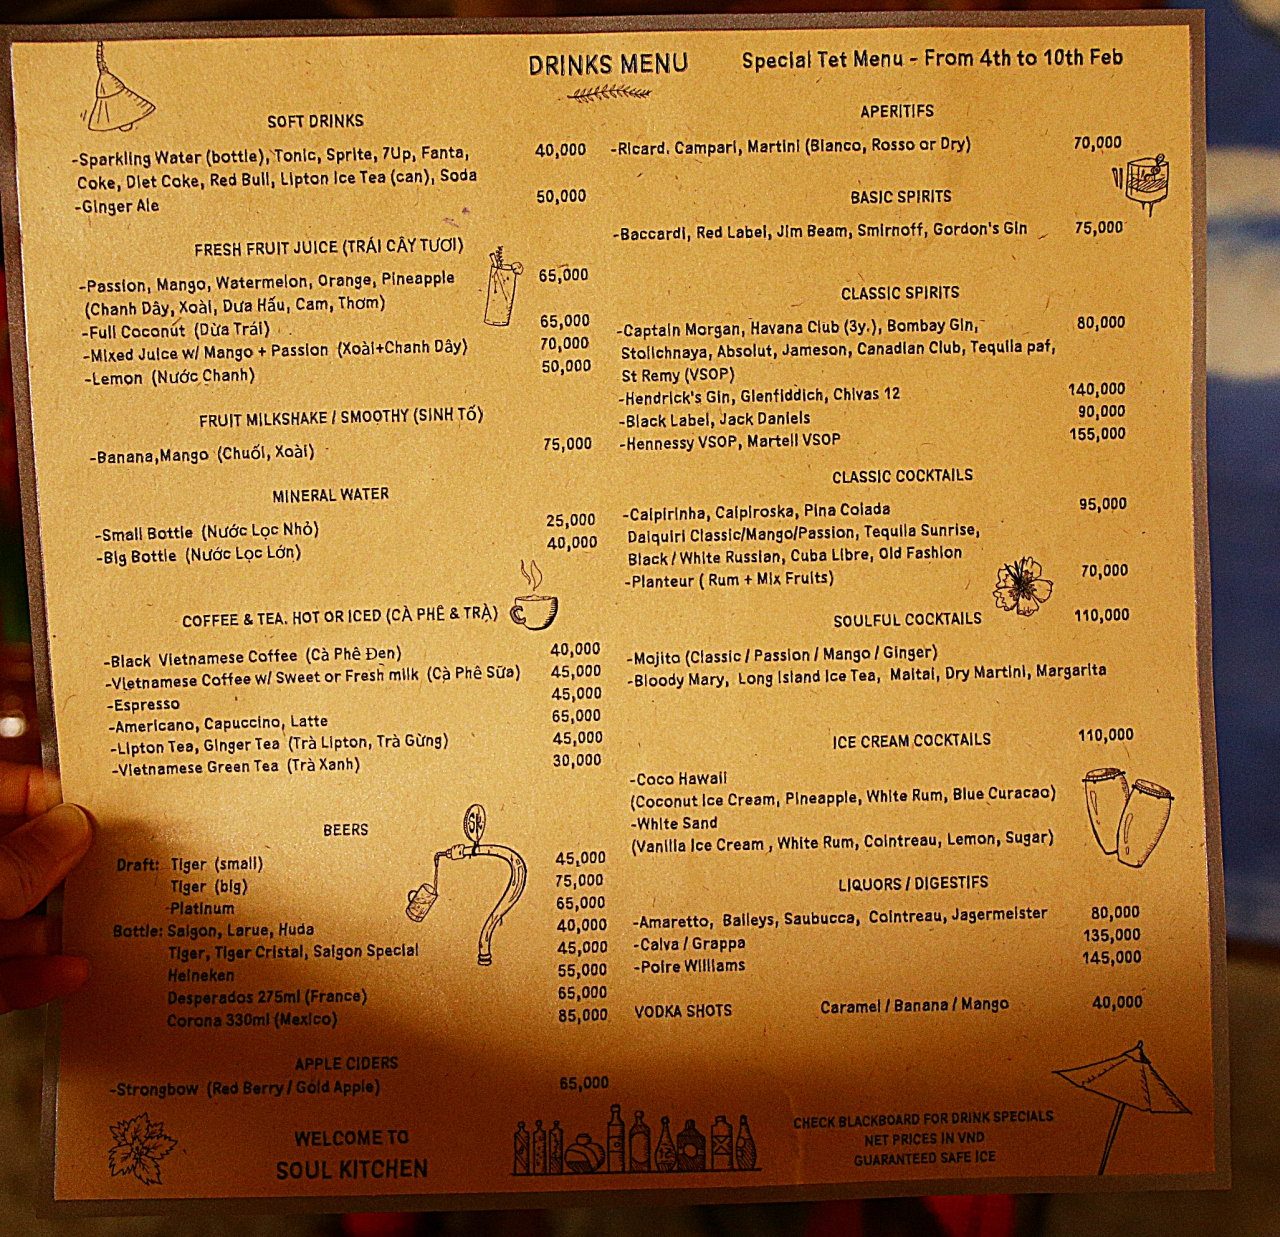 DRINKS MENU
Special Tet Menu - From 4th to 10th Feb
SOFT DRINKS
-Sparkling Water (bottle), Tonic, Sprite, 7Up, Fanta, 40,000
Coke, Diet Coke, Red Bull, Lipton Ice Tea (can), Soda
-Ginger Ale 50,000
FRESH FRUIT JUICE (TRÁI CÂY TƯƠI)
-Passion, Mango, Watermelon, Orange, Pineapple 65,000
(Chanh Dây, Xoài, Dưa Hấu, Cam, Thơm)
-Full Coconut (Dừa Trái) 65,000
-Mixed Juice w/ Mango + Passion (Xoài+Chanh Dây) 70,000
-Lemon (Nước Chanh) 50,000
FRUIT MILKSHAKE / SMOOTHY (SINH TỐ)
-Banana,Mango (Chuối, Xoài) 75,000
MINERAL WATER
-Small Bottle (Nước Lọc Nhỏ) 25,000
-Big Bottle (Nước Lọc Lớn) 40,000
COFFEE & TEA. HOT OR ICED (CÀ PHÊ & TRÀ)
-Black Vietnamese Coffee (Cà Phê Đen) 40,000
-Vietnamese Coffee w/ Sweet or Fresh milk (Cà Phê Sữa) 45,000
-Espresso 45,000
-Americano, Capuccino, Latte 65,000
-Lipton Tea, Ginger Tea (Trà Lipton, Trà Gừng) 45,000
-Vietnamese Green Tea (Trà Xanh) 30,000
BEERS
SK
Draft: Tiger (small) 45,000
Tiger (big) 75,000
-Platinum 65,000
Bottle: Saigon, Larue, Huda 40,000
Tiger, Tiger Cristal, Saigon Special 45,000
Heineken 55,000
Desperados 275ml (France) 65,000
Corona 330ml (Mexico) 85,000
APPLE CIDERS
-Strongbow (Red Berry / Gold Apple) 65,000
WELCOME TO
SOUL KITCHEN
APERITIFS
-Ricard. Campari, Martini (Bianco, Rosso or Dry) 70,000
BASIC SPIRITS
-Baccardi, Red Label, Jim Beam, Smirnoff, Gordon's Gin 75,000
CLASSIC SPIRITS
-Captain Morgan, Havana Club (3y.), Bombay Gin, 80,000
Stolichnaya, Absolut, Jameson, Canadian Club, Tequila paf,
St Remy (VSOP)
-Hendrick's Gin, Glenfiddich, Chivas 12 140,000
-Black Label, Jack Daniels 90,000
-Hennessy VSOP, Martell VSOP 155,000
CLASSIC COCKTAILS
-Caipirinha, Caipiroska, Pina Colada 95,000
Daiquiri Classic/Mango/Passion, Tequila Sunrise,
Black / White Russian, Cuba Libre, Old Fashion
-Planteur ( Rum + Mix Fruits) 70,000
SOULFUL COCKTAILS 110,000
-Mojito (Classic / Passion / Mango / Ginger)
-Bloody Mary, Long Island Ice Tea, Maitai, Dry Martini, Margarita
ICE CREAM COCKTAILS 110,000
-Coco Hawaii
(Coconut Ice Cream, Pineapple, White Rum, Blue Curacao)
-White Sand
(Vanilla Ice Cream , White Rum, Cointreau, Lemon, Sugar)
LIQUORS / DIGESTIFS
-Amaretto, Baileys, Saubucca, Cointreau, Jagermeister 80,000
-Calva / Grappa 135,000
-Poire Williams 145,000
VODKA SHOTS Caramel / Banana / Mango 40,000
CHECK BLACKBOARD FOR DRINK SPECIALS
NET PRICES IN VND
GUARANTEED SAFE ICE